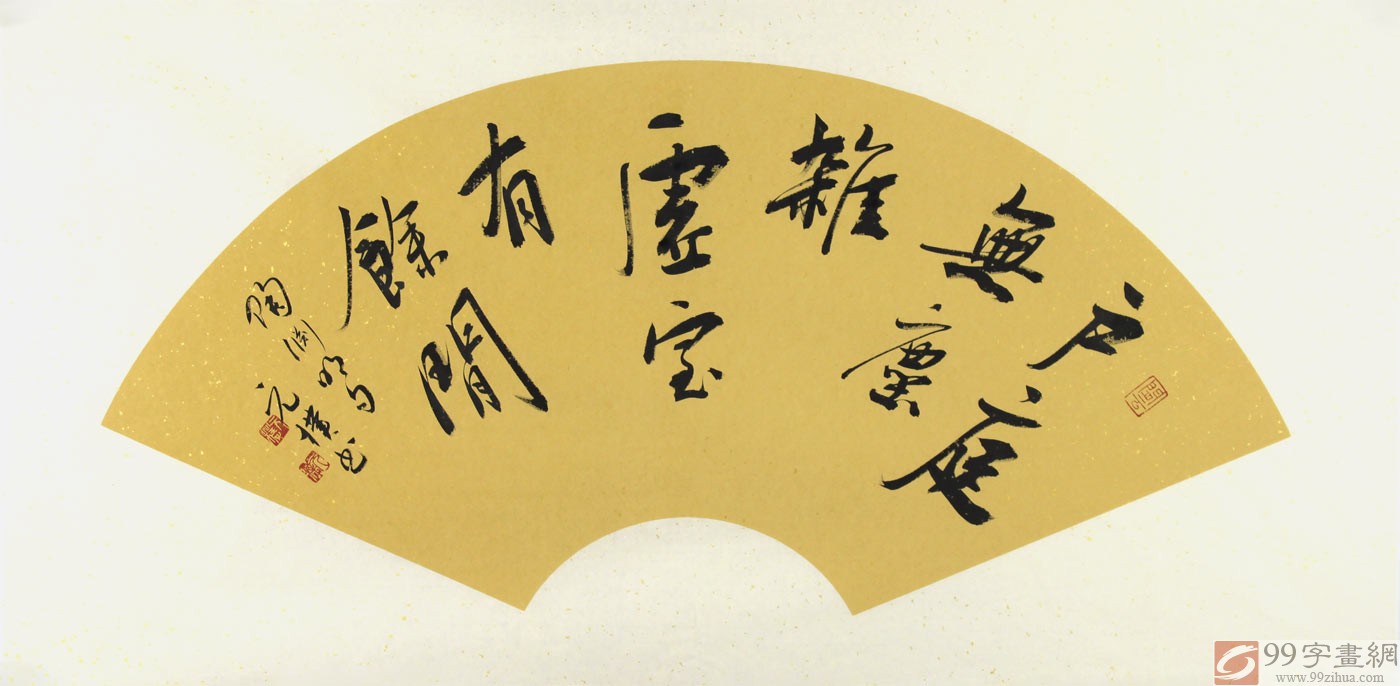 户庭
無塵
雜
虚室
有
餘閒
陶渊明句
书
99字畫網
www.99zihua.com